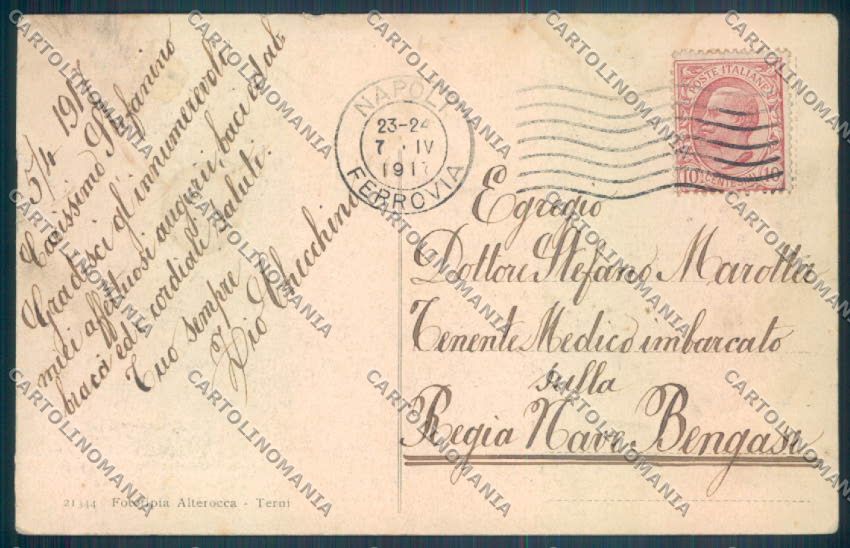 5/4 1917
Carissimo Stefanino
Gradisci gl'innumerevoli
miei affettuosi auguri, baci ed ab
bracci ed i cordiali saluti.
Tuo sempre
Zio Chicchino
NAPOLI
23-24
7 . IV
1917
FERROVIA
POSTE ITALIANE
10 CENTESIMI 10
Egregio
Dottore Stefano Marotta
Tenente Medico imbarcato
sulla
Regia Nave Bengasi
21344 Fototipia Alterocca - Terni
CARTOLINOMANIA